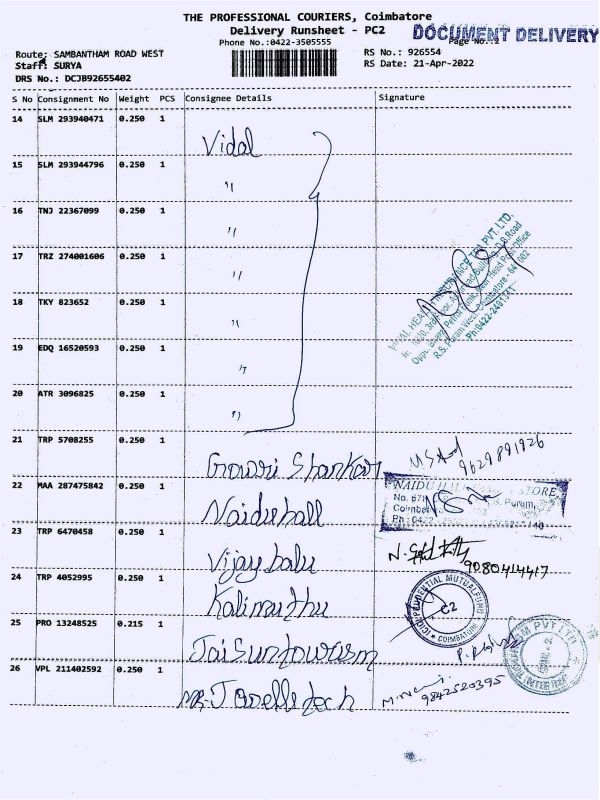 THE PROFESSIONAL COURIERS, Coimbatore
Delivery Runsheet - PC2
DOCUMENT DELIVERY
Phone No.:0422-3505555
Page No.:2
Route: SAMBANTHAM ROAD WEST
RS No.: 926554
Staff: SURYA
RS Date: 21-Apr-2022
DRS No.: DCJB92655402
S No Consignment No Weight PCS Consignee Details Signature
14 SLM 293940471 0.250 1 Vidal
15 SLM 293944796 0.250 1 "
16 TNJ 22367099 0.250 1 "
17 TRZ 274001606 0.250 1 "
18 TKY 823652 0.250 1 "
19 EDQ 16520593 0.250 1 "
20 ATR 3096825 0.250 1 "
21 TRP 5708255 0.250 1 Gowri Shankar
9629891926
22 MAA 287475842 0.250 1 Naiduhall
NAIDU STORE,
No. 678 Puram,
23 TRP 6470458 0.250 1 Vijaybalu
9080414417
24 TRP 4052995 0.250 1 Kalimuthu
ICICI PRUDENTIAL MUTUAL FUND
C2
COIMBATORE
25 PRO 13248525 0.215 1 Jaisuntourism
PVT LTD
26 VPL 211402592 0.250 1
9842520395
VIDAL HEALTH INSURANCE TPA PVT. LTD.
D.B.Road
Head Post Office
R.S. Puram West, Coimbatore - 641 002
Ph:0422-2401311